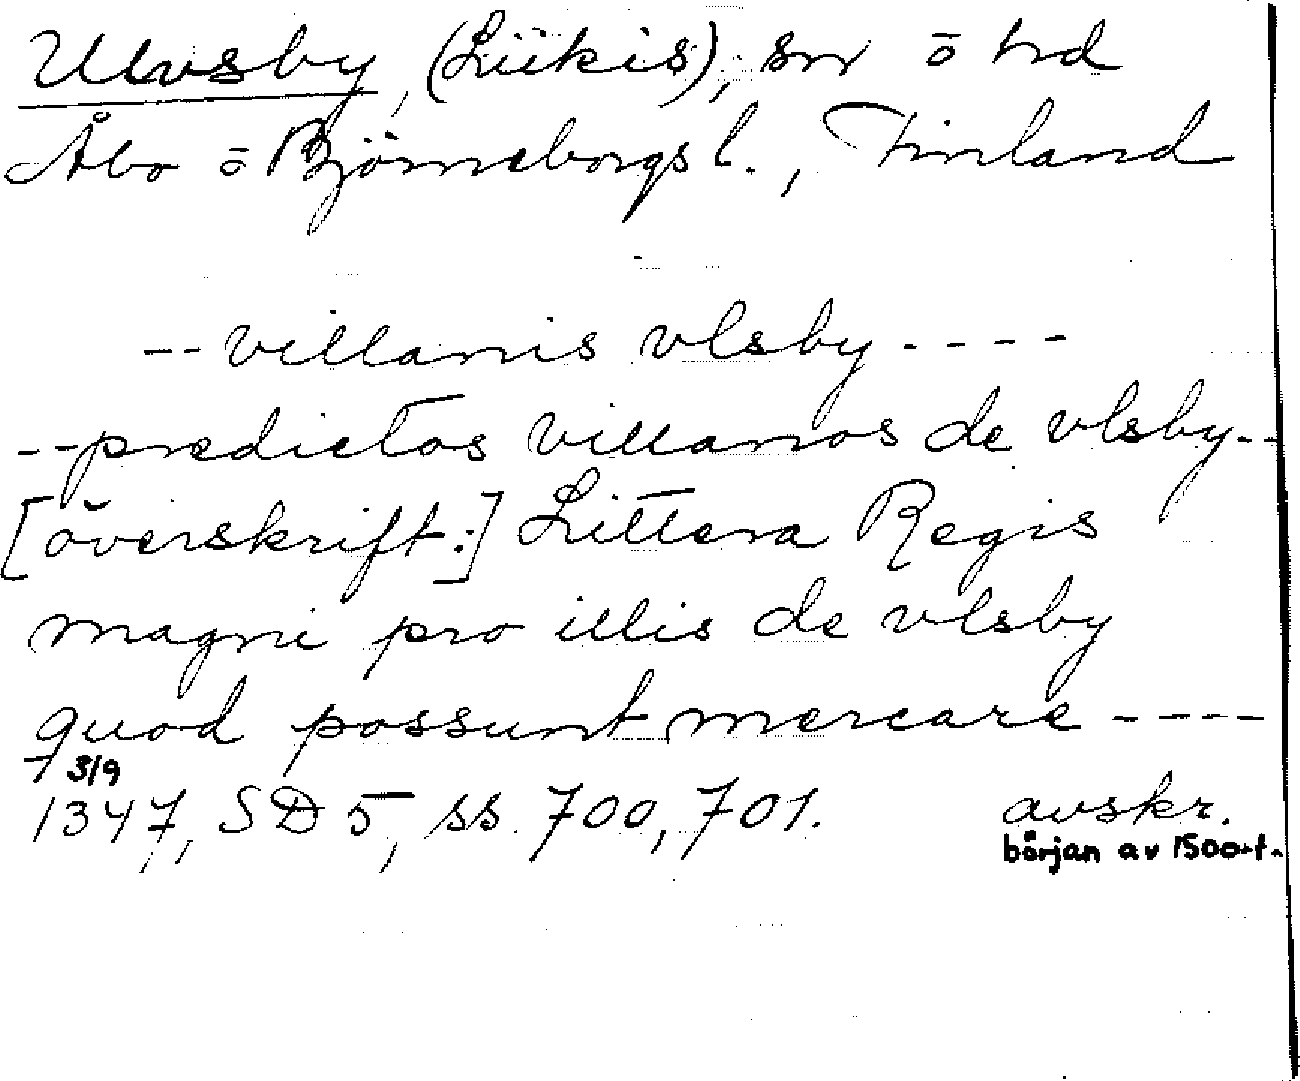 Ulvsby, (Liikis), sn ō hd
Åbo ō Björneborgs l., Finland
-- villanis vlsby ----
-- predictos villanos de vlsby --
[överskrift:] Littera Regis
magni pro illis de vlsby
quod possunt mercare ----
7 3/9
1347, SD 5, ss. 700, 701. avskr.
början av 1500-t.